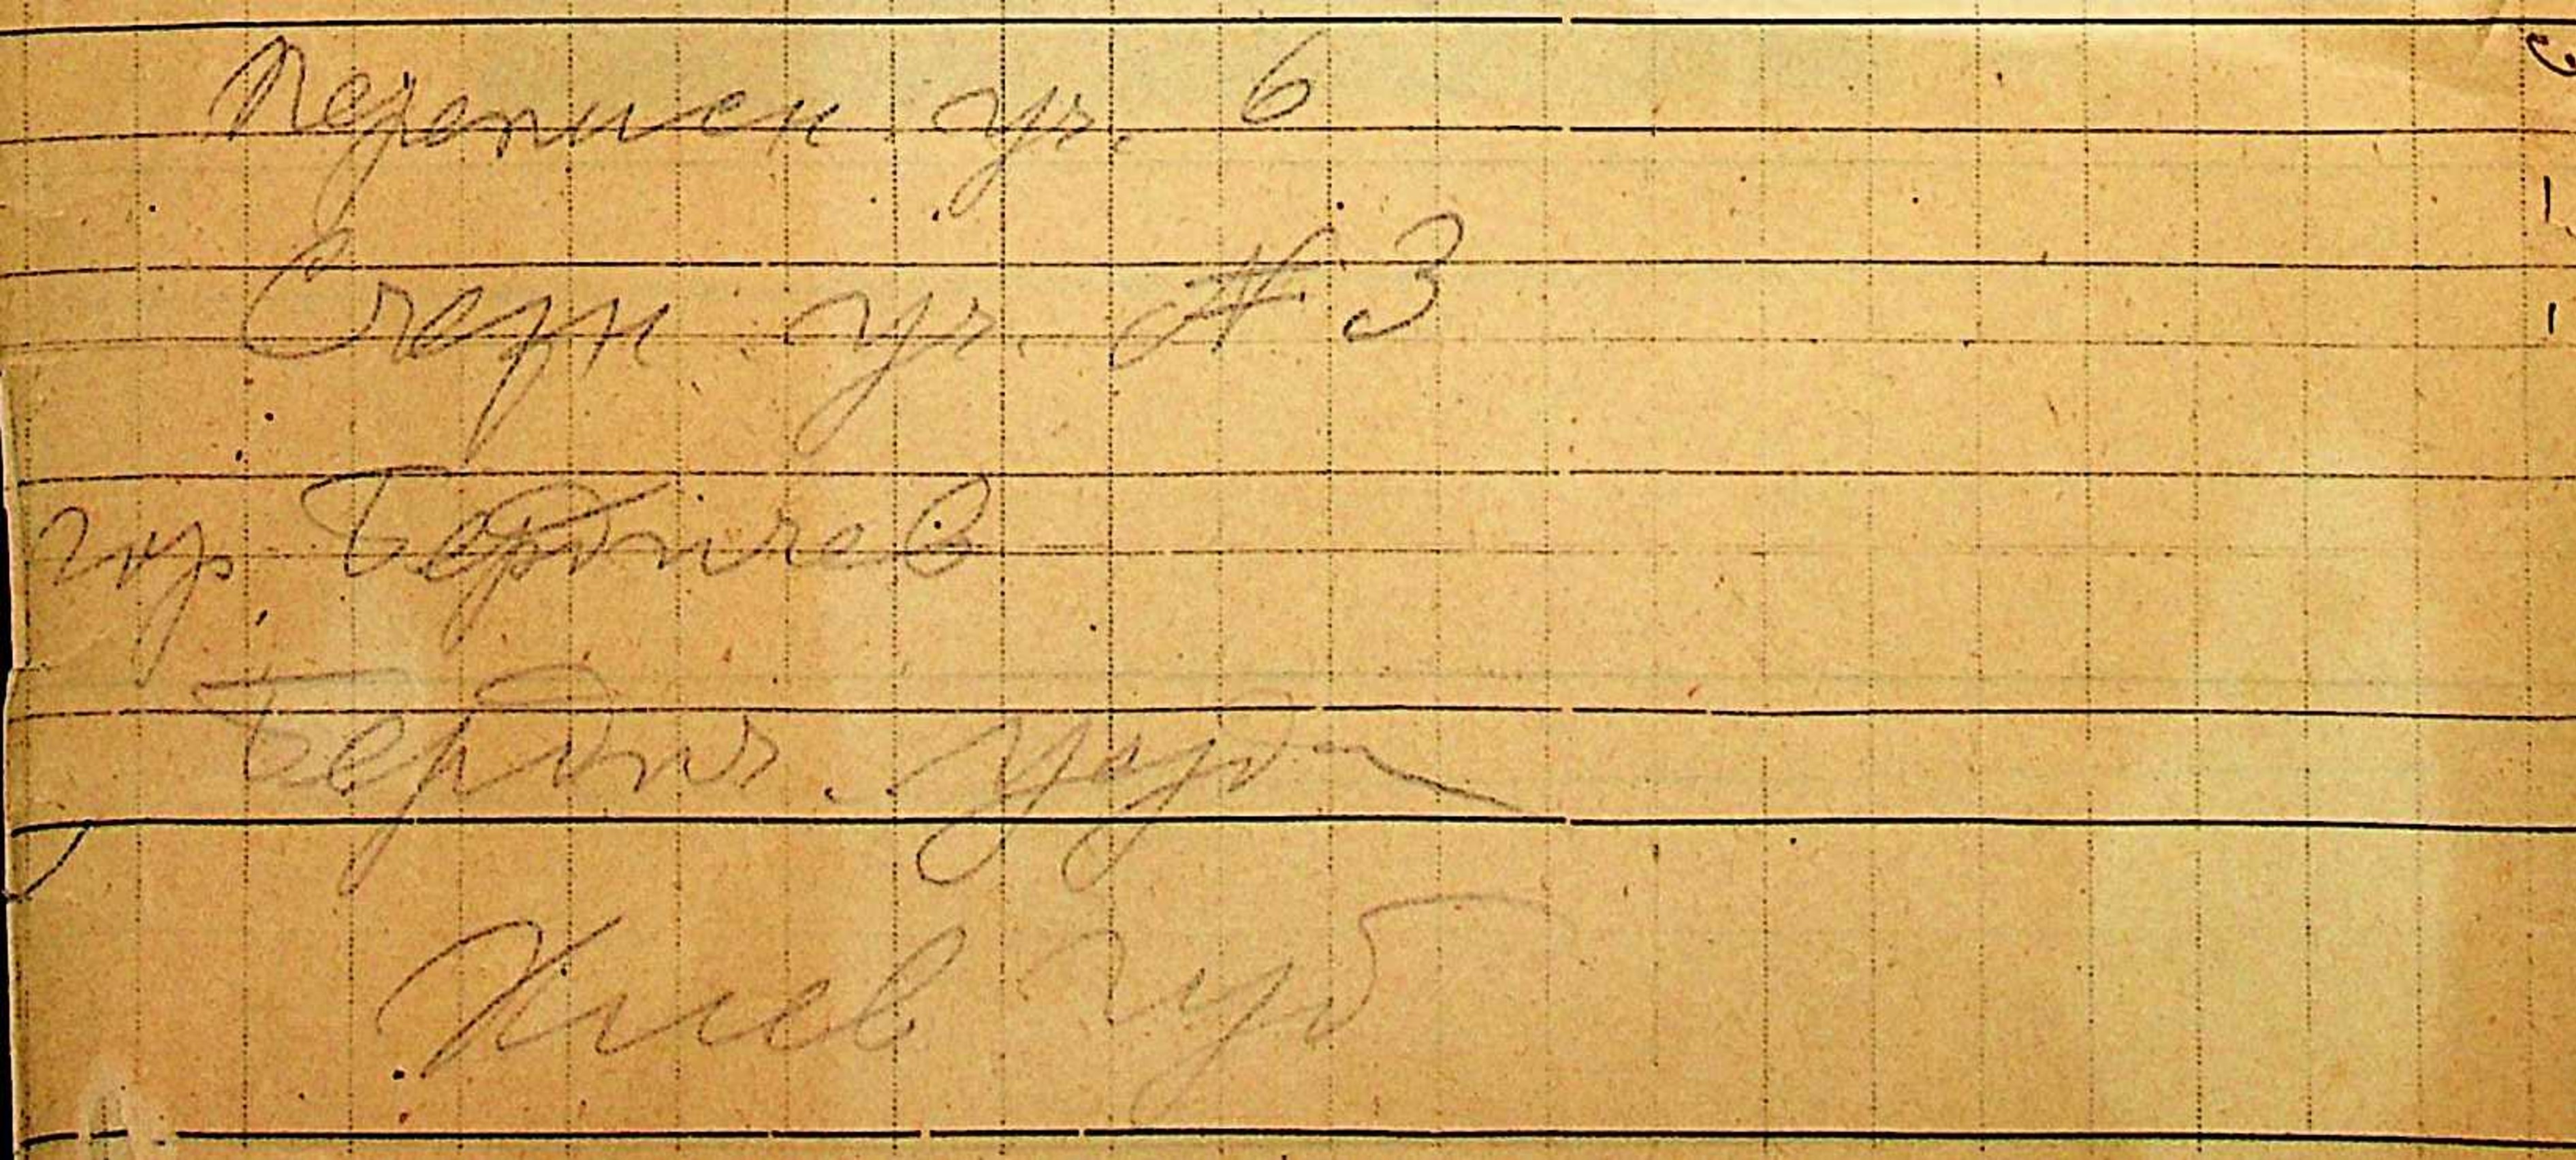 Переписн уч. 6
Счетн уч. № 3
гор Бердичев
Бердич. уезда
Киев губ